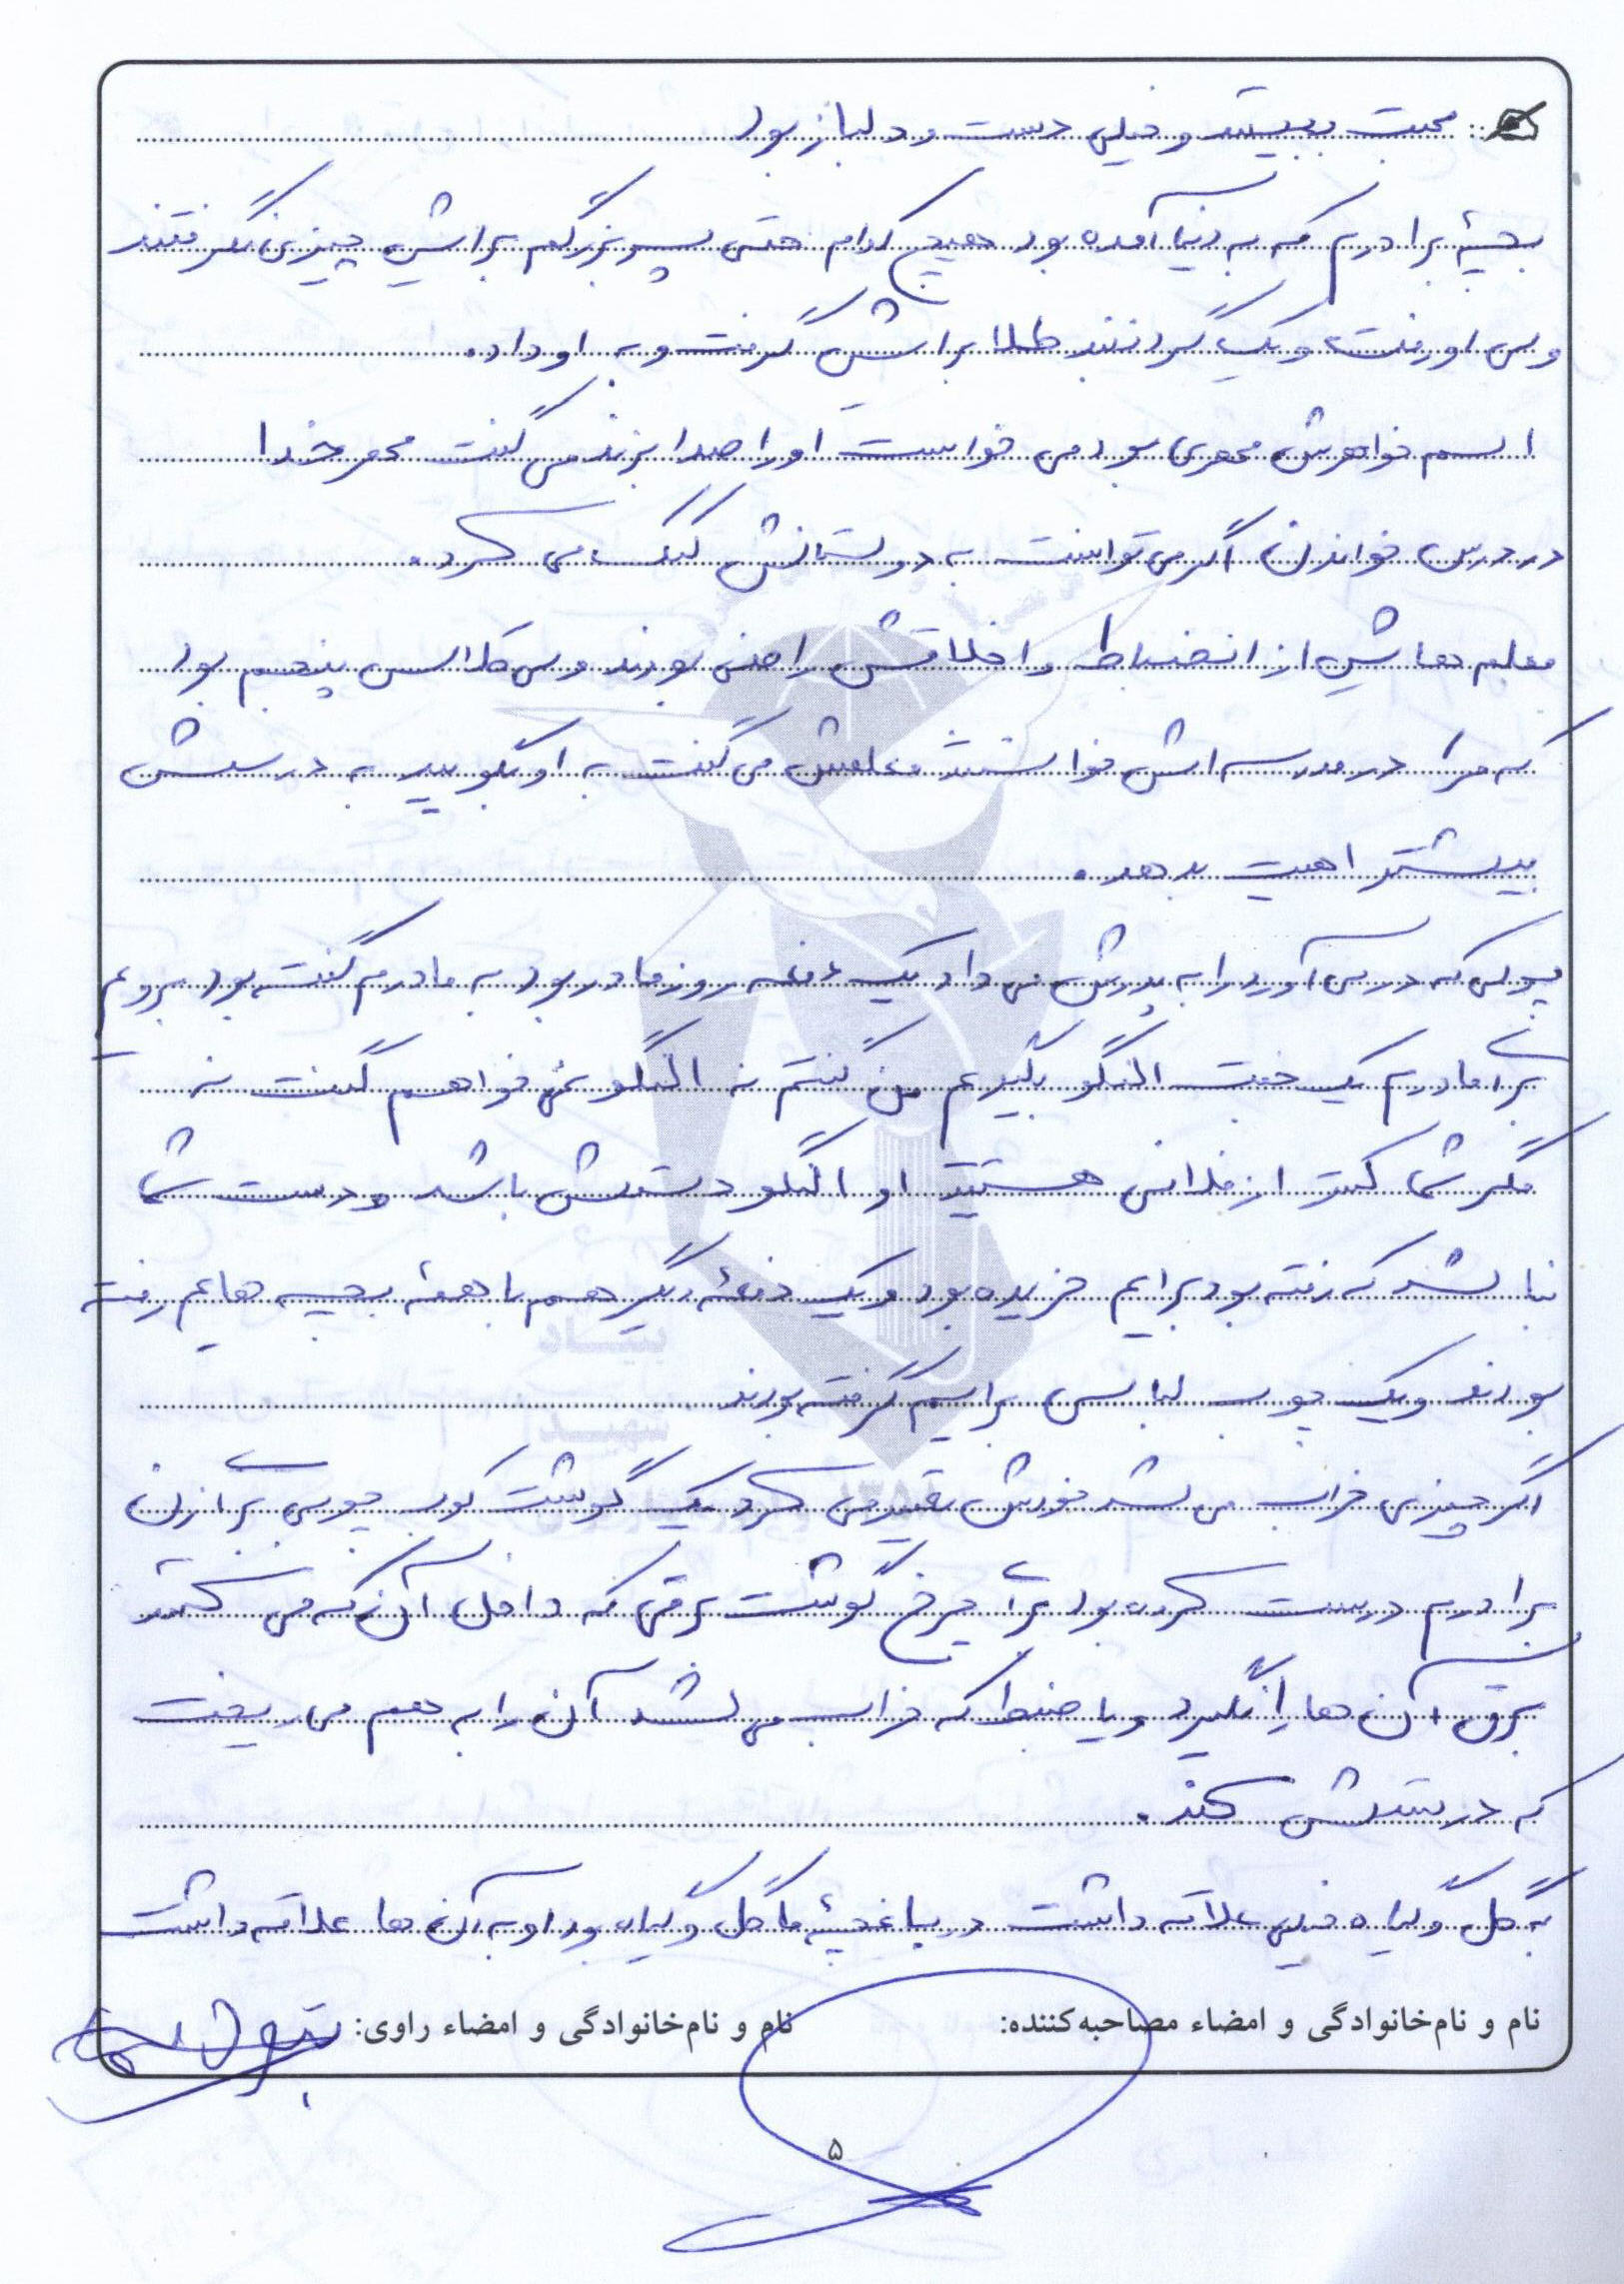 محبت ببینند و خیلی دست و دلباز بود
بچۀ برادرم که به دنیا آمده بود هیچ کدام حتی پسر بزرگم برایش چیزی نگرفتند
ولی او رفت و یک گردنبند طلا برایش گرفت و به او داد.
اسم خواهرش مهری بود می خواست او را صدا بزند می گفت مهر خدا
در درس خواندن اگر می توانست به دوستانش کمک می کرد.
معلم هایش از انضباط و اخلاقش راضی بودند ولی کلاس پنجم بود
که مرا در مدرسه اش خواستند معلمش می گفت به او بگویید به درسش
بیشتر اهمیت بدهد.
پولی که در می آورد را به پدرش می داد یک دفعه روز مادر بود به مادرم گفته بود برویم
برا مادرم یک جفت النگو بگیریم من گفتم نه النگو نمی خواهم گفت نه
مگر شما کمتر از فلانی هستید او النگو دستش باشد و دست شما
نباشد که رفته بود برایم خریده بود و یک دفعۀ دیگر هم با همۀ بچه هایم رفته
بودند و یک چوب لباسی برایم گرفته بودند
اگر چیزی خراب می شد خودش تعمیر می کرد یک گوشت کوب چوبی برا زن
برادرم درست کرده بود برا چرخ گوشت برقی که داخل آن که می
برق آن ها را نگیرد و یا ضبط که خراب می شد آن را به هم می ریخت
که درستش کند.
به گل و گیاه خیلی علاقه داشت در باغچۀ ما گل و گیاه بود او به آن ها علاقه داشت
نام و نام‌خانوادگی و امضاء مصاحبه‌کننده:
نام و نام‌خانوادگی و امضاء راوی:
۵